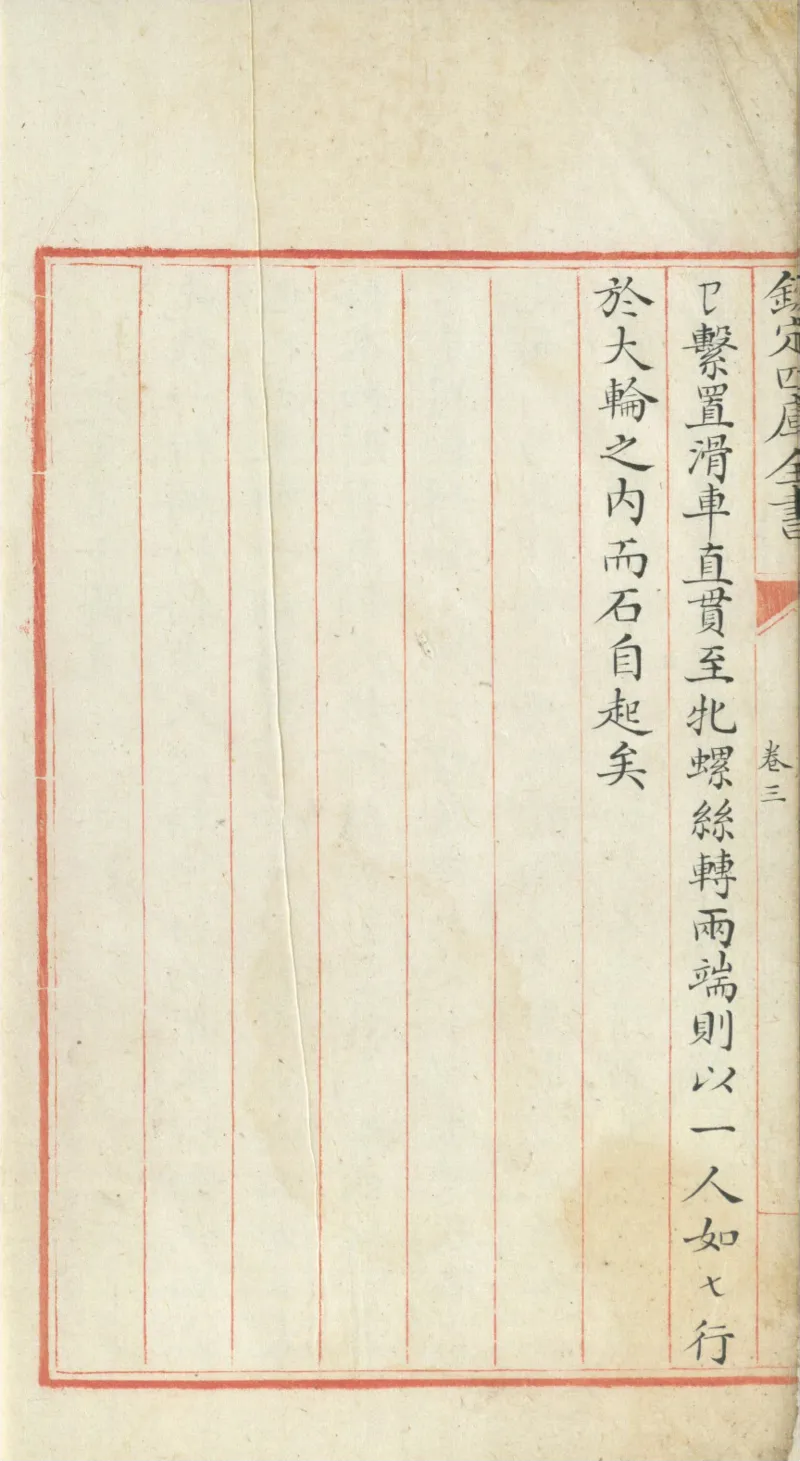 欽定四庫全書
卷三
繫置滑車直貫至牝螺絲轉兩端則以一人如行
於大輪之内而石自起矣